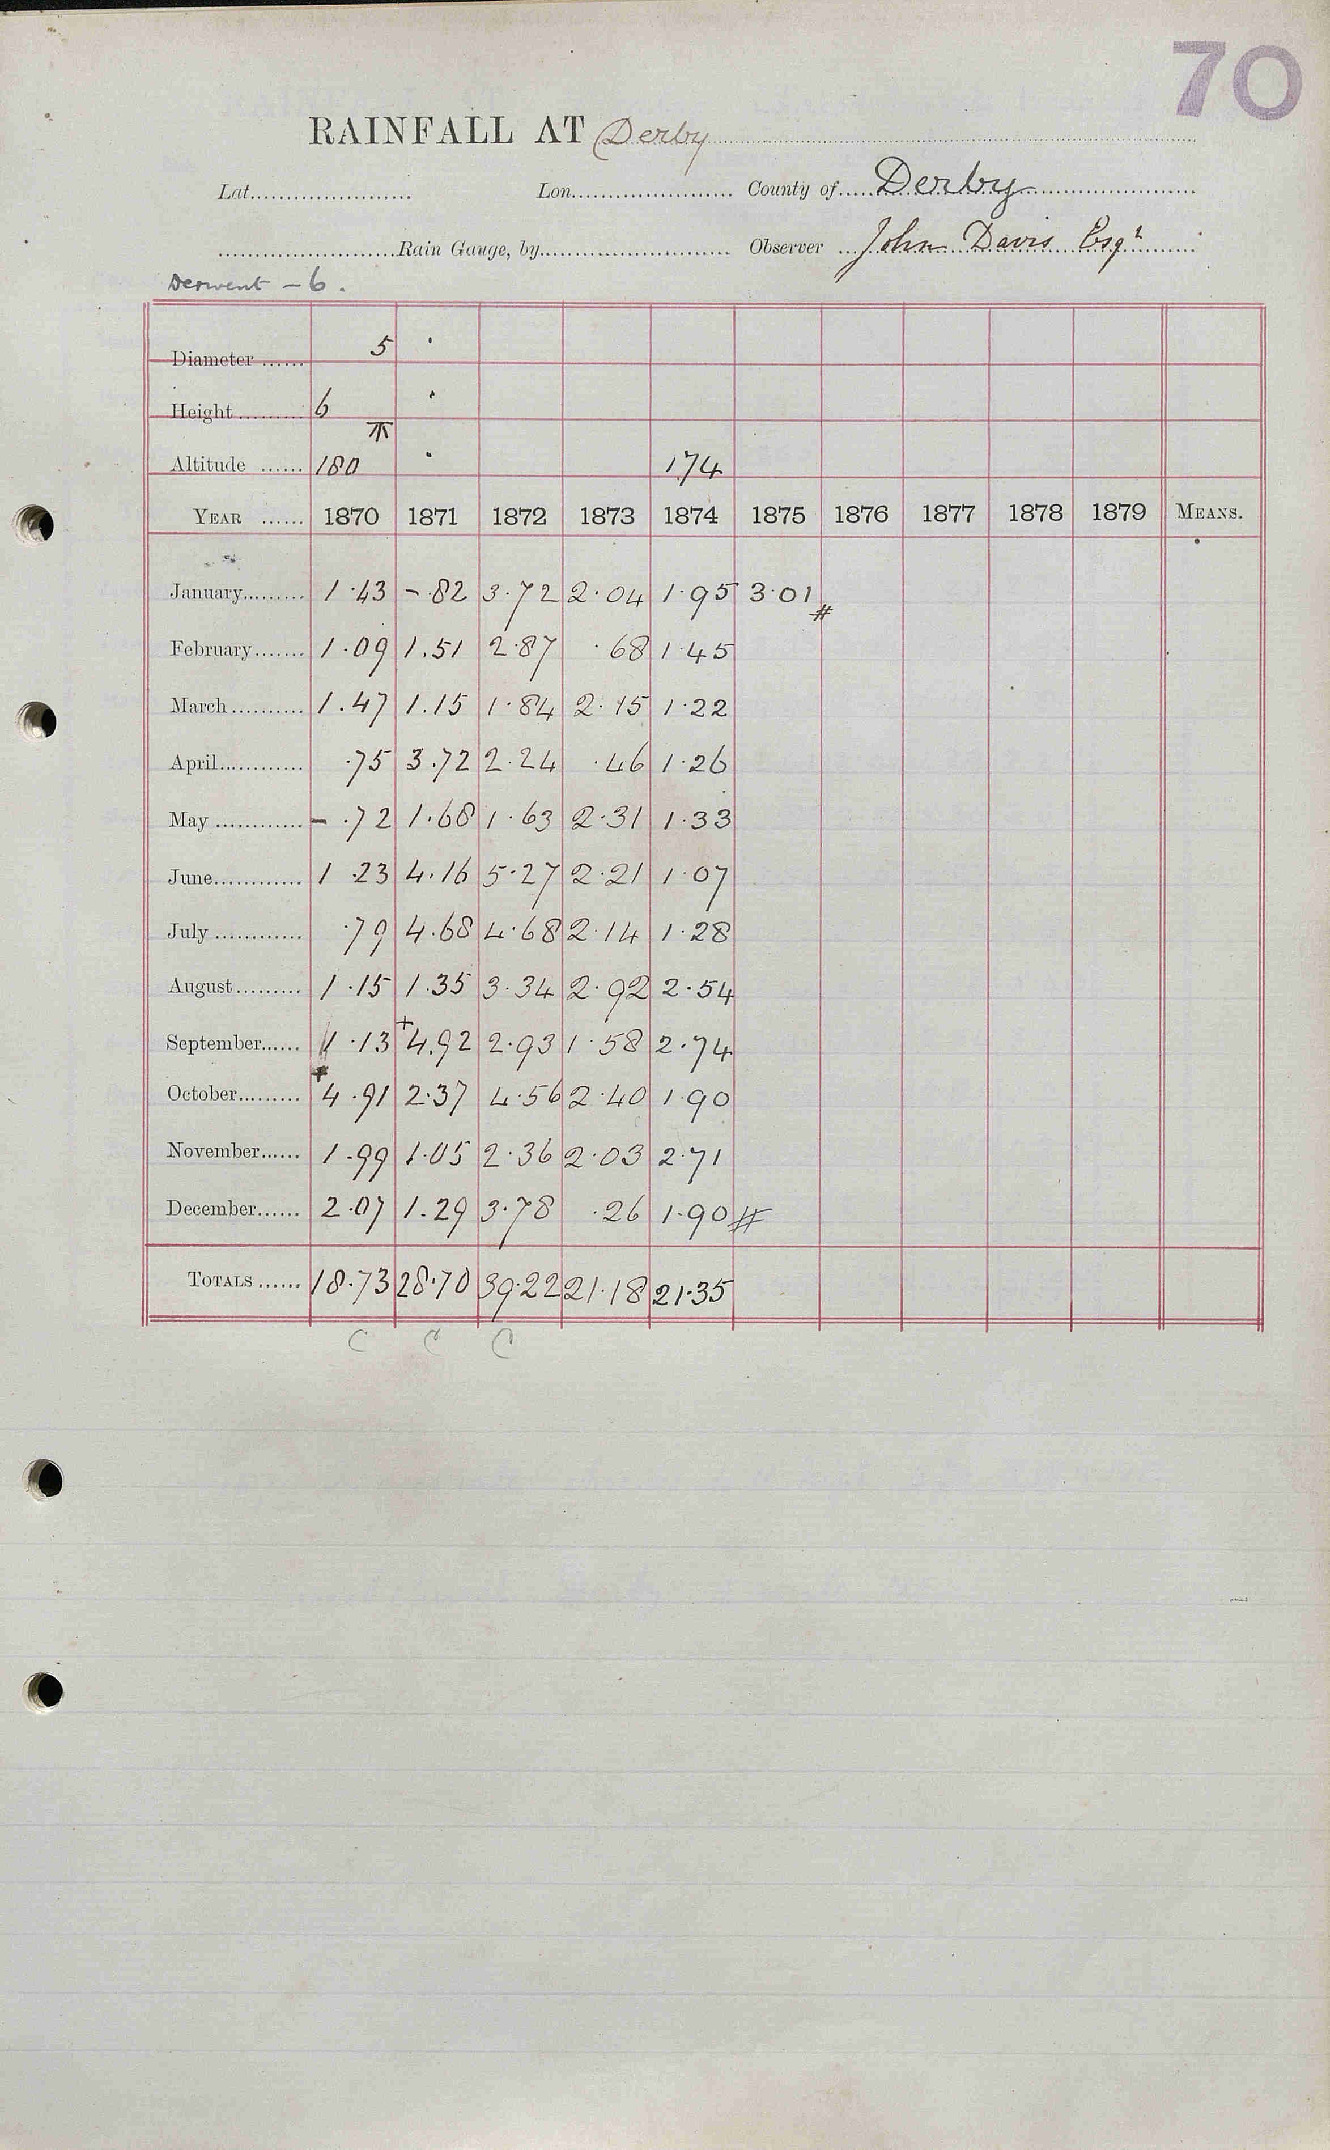 70
RAINFALL AT Derby
Lat. Lon. County of Derby
Rain Gauge, by Observer John Davis Esqr
Derwent - 6.
Diameter 5 ·
Height 6 ·
Altitude 180 · 174
YEAR 1870 1871 1872 1873 1874 1875 1876 1877 1878 1879 MEANS.
January 1·43 -·82 3·72 2·04 1·95 3·01 #
February 1·09 1.51 2·87 ·68 1·45
March 1·47 1.15 1·84 2·15 1·22
April ·75 3.72 2·24 ·46 1·26
May - ·72 1·68 1·63 2·31 1·33
June 1·23 4·16 5·27 2·21 1·07
July ·79 4·68 4·68 2·14 1·28
August 1·15 1·35 3·34 2·92 2·54
September 1·13 +4.92 2·93 1·58 2·74
October +4·91 2·37 4·56 2·40 1·90
November 1·99 1·05 2·36 2·03 2·71
December 2·07 1·29 3·78 ·26 1·90 #
TOTALS 18·73 28·70 39·22 21·18 21·35
C C C